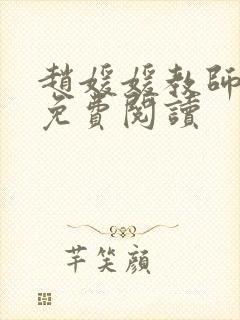 趙媛媛教師
免費閱讀
芊笑顏